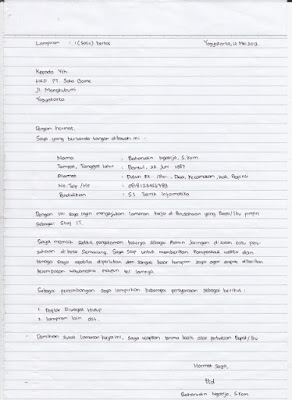 Lampiran : 1 (Satu) berkas Yogyakarta, Mei 2013
Kepada Yth.
HRD PT.
Jl. Mangkubumi
Yogyakarta
Dengan hormat,
Saya yang bertanda tangan dibawah ini :
Nama : Baharudin Ngatijo, S.Kom
Tempat, Tanggal lahir : Bantul, 26 Juni 1987
Alamat : Dusun Rt. /Rw.-, Desa, Kecamatan, Kab. Regions
No. Tlp /Hp :
Pendidikan : S1 Teknik Informatika
Dengan ini saya ingin mengajukan lamaran kerja di Perusahaan yang Bapak/Ibu pimpin
sebagai Staf IT.
Saya memiliki sedikit pengalaman bekerja sebagai Admin Jaringan di salah satu peru-
sahaan di kota Semarang. Saya siap untuk memberikan kompetensi waktu dan
tenaga saya apabila diperlukan dan sangat besar harapan saya agar dapat diberikan
kesempatan wawancara maupun tes lainnya.
Sebagai pertimbangan saya lampirkan beberapa persyaratan sebagai berikut :
1. Daftar Riwayat Hidup
2. Lampiran lain dll.
Demikian surat lamaran kerja ini, saya ucapkan terima kasih atas perhatian Bapak/Ibu
Hormat Saya,
ttd
Baharudin Ngatijo, S.Kom